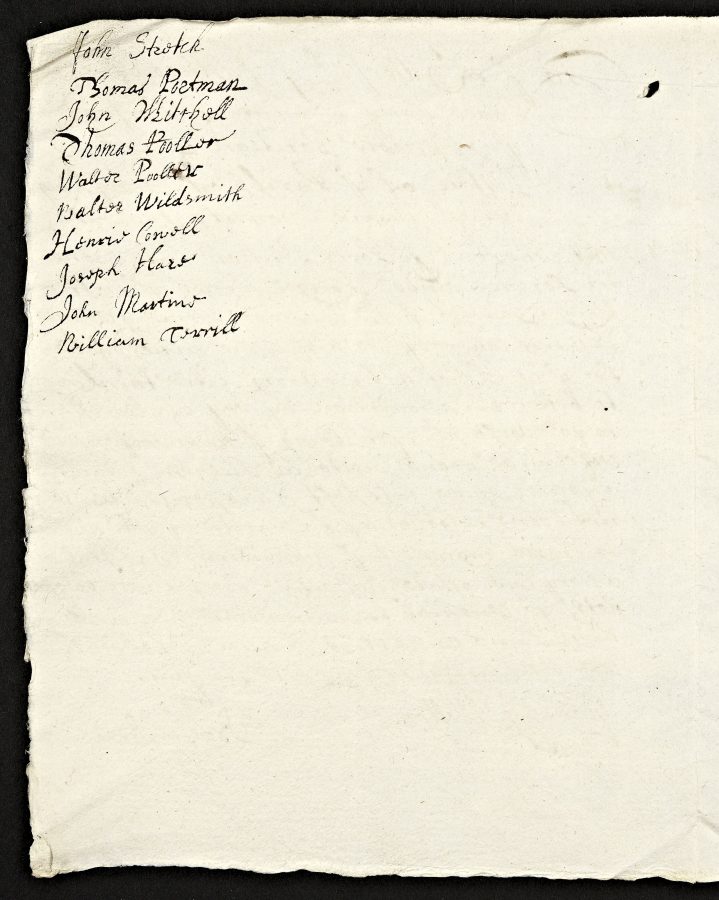 John Stretch
Thomas Portman
John Mitchell
Thomas Pooller
Walter Pooller
Walter Wildsmith
Henrie Cowell
Joseph Hare
John Martine
William Terrill